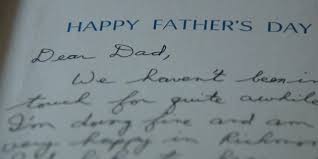 HAPPY FATHER'S DAY
Dear Dad,
We haven't been in
touch for quite awhile
I'm doing fine and am
very happy in Richmon